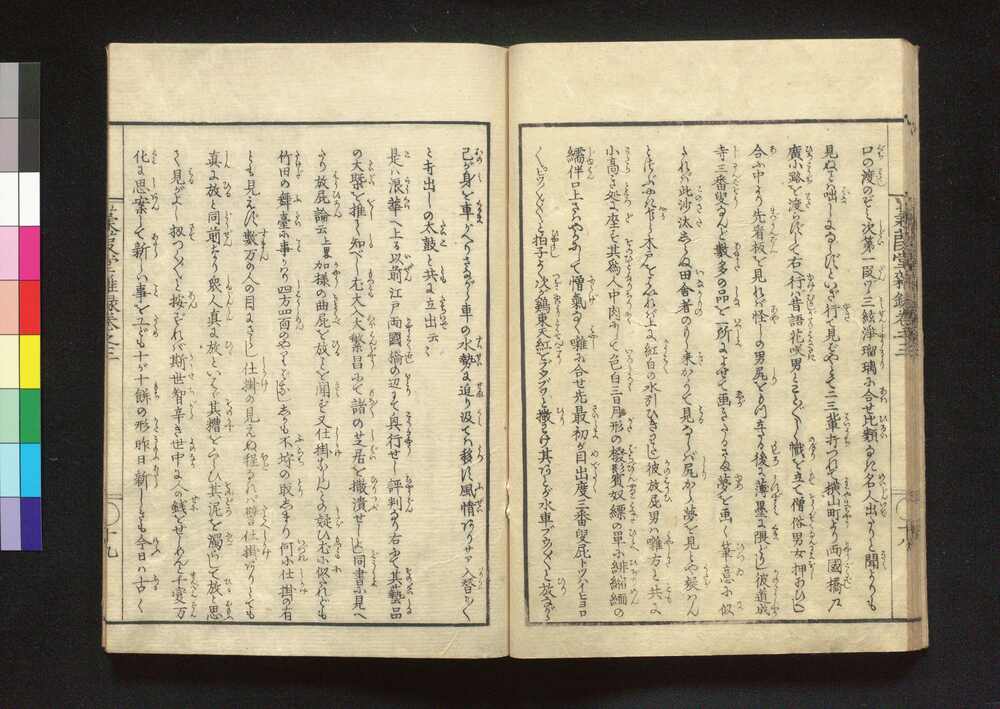 口の渡のぞし次第一段ツヾ三絃淨瑠璃に合せ比類なき名人出たりと聞よりも
見ぬも咄しよなるべしといざ行て見ばやとて二三輩打つれて横山町より両國橋の
廣小路を渡らずして右へ行ば昔語花咲男とことごとしく幟を立て僧俗男女押あひへし
合ふ中より先看板を見れば怪しの男尻もつ立たる後に薄墨に隈どり彼道成
寺三番叟なんど數多の品を一所によせて画きたるさま夢を画く筆意に似
たれば此沙汰しらぬ田舎者のもし来かゝりて見るならば尻から夢を見るとや疑はん
とつぶやきながら木戸をはいれば上に紅白の水引ひきわたし彼放屁男は囃方と共に
小高き処に座す其為人中肉にして色白三日月形の撥鬢奴縹の單に緋縮緬の
繻伴口上さわやかにして憎氣なく囃に合せ先最初が目出度三番叟屁トッハヒョロ
ヒョロヒッヒッヒッと拍子よく次が鷄東天紅をブブブウブウと撒わけ其あとが水車ブウブウブウと放ながら
己が身を車がへりさながら車の水勢に迫り汲ては移す風情ありサア入替り〳〵
と打出しの太鼓と共に立出云々
是は浪華へ上る以前江戸両國橋の辺にて興行せし評判なり右にて其藝品
の大槩を推て知べし尤大入大繁昌にて諸の芝居を撒潰せしと同書に見へ
たり放屁論云上畧加様の曲屁を放ことを聞ず又仕掛ならんとの疑ひ尤に似たれども
竹田の舞臺に事かはり四方正面のやりばなししかも不埒の取しまり何に仕掛の有
とも見えず數万の人の目にさらし仕掛の見えぬ程なれば譬仕掛ありとても
真に放と同前なり衆人真に放といはゞ其糟をくらひ其泥を濁して放と思
て見るがよし扨つく〴〵と按ずれば斯世智辛き世の中に人の銭をせしめんと千變万
化に思案して新しい事を工ども十が十餅の形昨日新しきも今日は古く